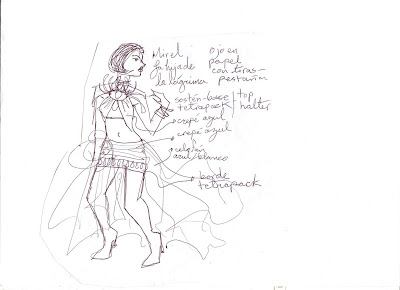 Mirel
la hija de
la lágrima
ojo en
papel
con tiras-
pestañas
sostén-base
tetrapack
top
halter
crepé azul
crepé azul
celofán
azul/blanco
borde
tetrapack